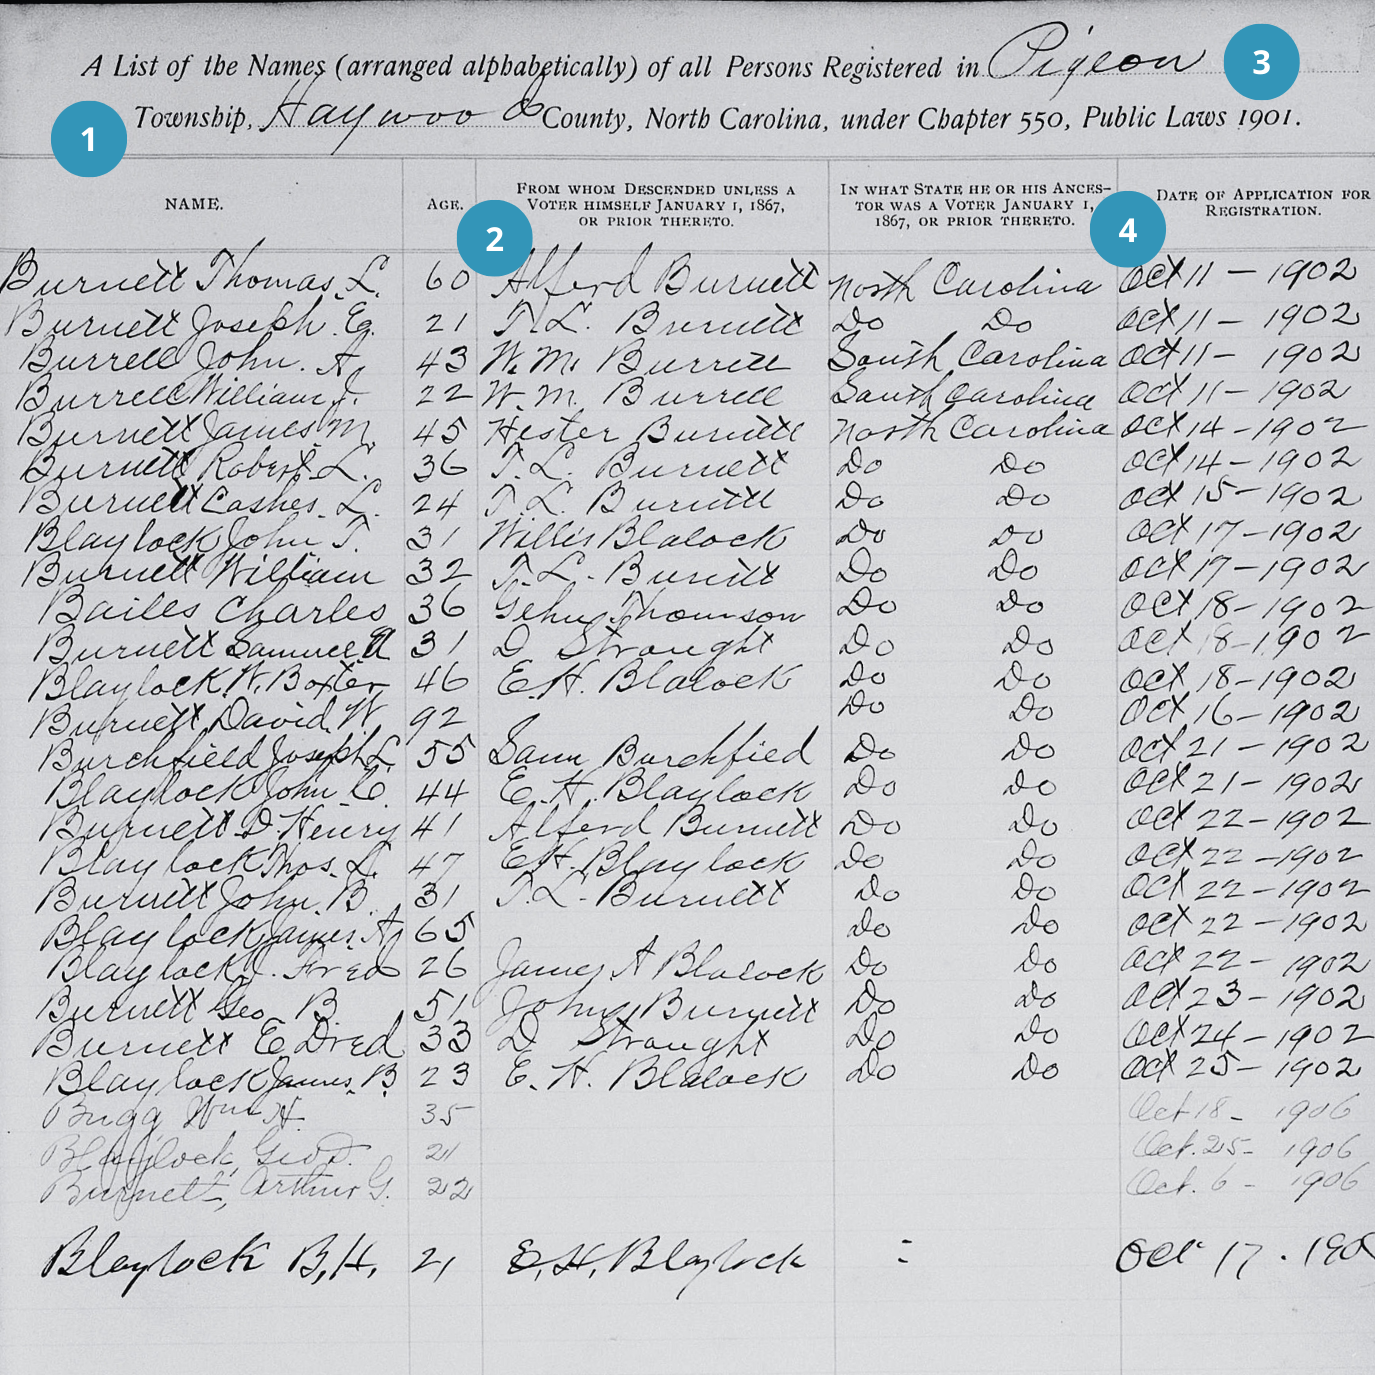 A List of the Names (arranged alphabetically) of all Persons Registered in Pigeon 3
1 Township, Haywood County, North Carolina, under Chapter 550, Public Laws 1901.
NAME. AGE. FROM WHOM DESCENDED UNLESS A VOTER HIMSELF JANUARY 1, 1867, OR PRIOR THERETO. IN WHAT STATE HE OR HIS ANCES-TOR WAS A VOTER JANUARY 1, 1867, OR PRIOR THERETO. DATE OF APPLICATION FOR REGISTRATION.
2 4
Burnett Thomas. L. 60 Alferd Burnett North Carolina Oct 11 - 1902
Burnett Joseph. E. 21 T. L. Burnett Do Do Oct 11 - 1902
Burrell John. A. 43 W. M. Burrell South Carolina Oct 11 - 1902
Burrell William J. 22 W. M. Burrell South Carolina Oct 11 - 1902
Burnett James M. 45 Hester Burnett North Carolina Oct 14 - 1902
Burnett Robert L. 36 T. L. Burnett Do Do Oct 14 - 1902
Burnett Cashes. L. 24 T. L. Burnett Do Do Oct 15 - 1902
Blaylock John T. 31 Willis Blalock Do Do Oct 17 - 1902
Burnett William 32 T. L. Burnett Do Do Oct 17 - 1902
Bailes Charles 36 Thomson Do Do Oct 18 - 1902
Burnett Samuel 31 D Strought Do Do Oct 18 - 1902
Blaylock W. Boxter 46 E. H. Blalock Do Do Oct 18 - 1902
Burnett David W. 92 Do Do Oct 16 - 1902
Burchfield Joseph L. 55 Sam Burchfied Do Do Oct 21 - 1902
Blaylock John C. 44 E. H. Blaylock Do Do Oct 21 - 1902
Burnett D. Henry 41 Alferd Burnett Do Do Oct 22 - 1902
Blaylock Thos. L. 47 E H. Blaylock Do Do Oct 22 - 1902
Burnett John. B. 31 T. L. Burnett Do Do Oct 22 - 1902
Blaylock James. A. 65 Do Do Oct 22 - 1902
Blaylock J. Fred 26 James A Blalock Do Do Oct 22 - 1902
Burnett Geo B. 51 John Burnett Do Do Oct 23 - 1902
Burnett E Dred 33 D Strought Do Do Oct 24 - 1902
Blaylock James. B 23 E. H. Blalock Do Do Oct 25 - 1902
Bugg Wm H. 35 Oct 18 - 1906
Blaylock, Geo D. 21 Oct. 25 - 1906
Burnett, Arthur G. 22 Oct. 6 - 1906
Blaylock B, H. 21 E, H, Blaylock Oct 17 . 190